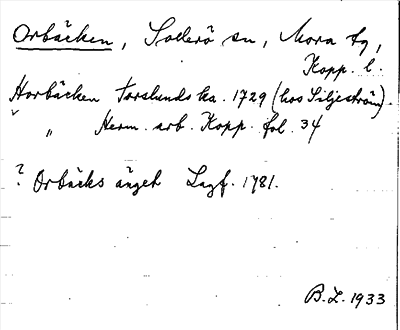 Orbäcken, Sollerö sn, Mora tg,
Kopp. l.
Horbäcken Torslunds ka. 1729 (hos Siljeström).
" " Herm. arb. Kopp. fol. 34
? Orbäcks änget Lagf. 1781.
B.L. 1933